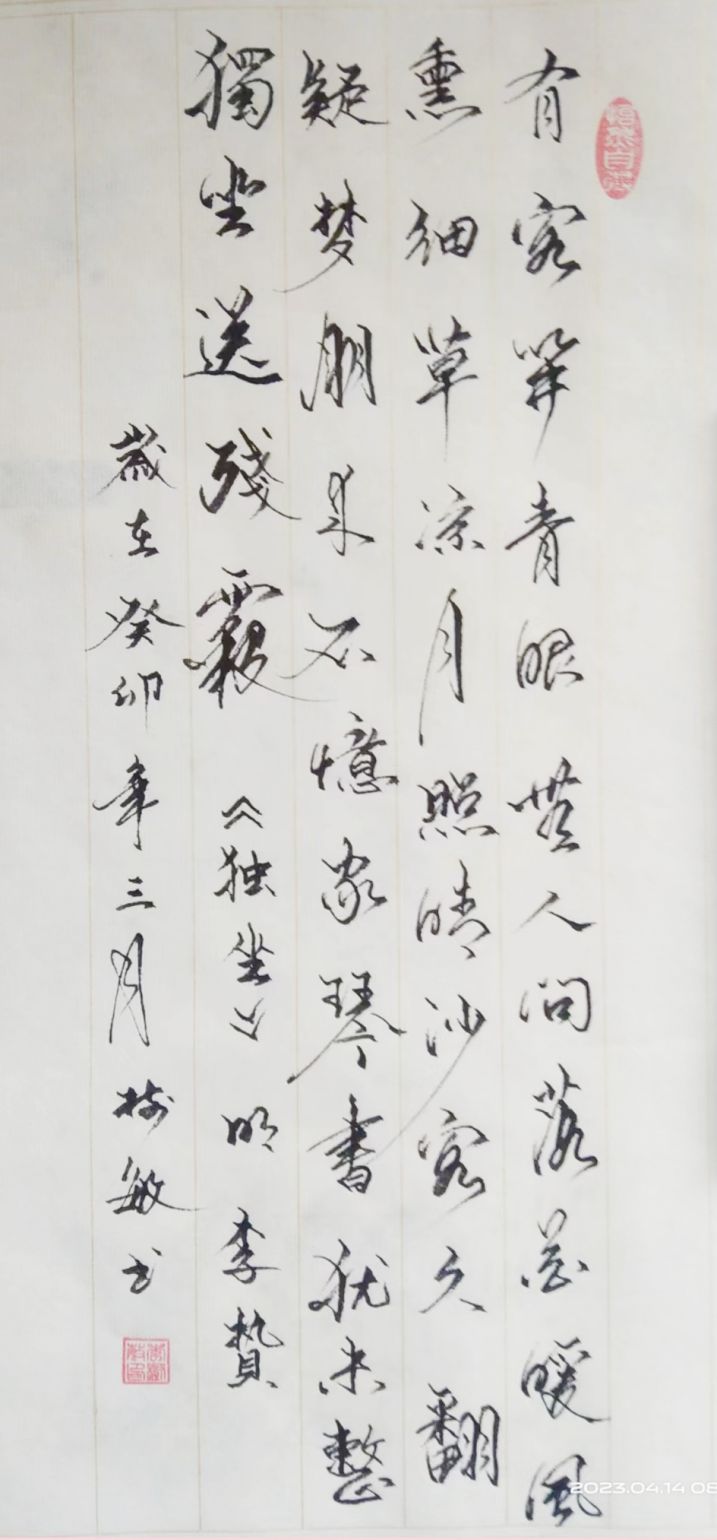 有客笄青眼无人问落花暖风
熏细草凉月照晴沙客久翻
疑梦朋来不憶家琴書犹未整
獨坐送残霞
《独坐》明李贄
歲在癸卯年三月 敏书
2023.04.14 08